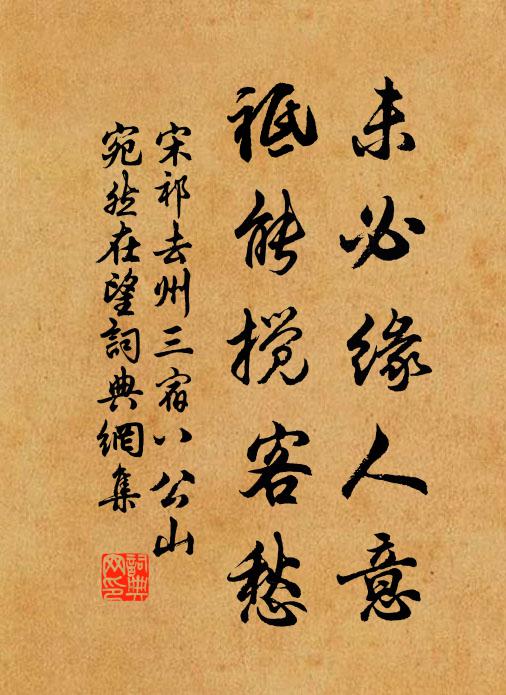 未必缘人意
祗能搅客愁
宋祁去州三宿八公山
宛然在望詞典網集
詞典网印